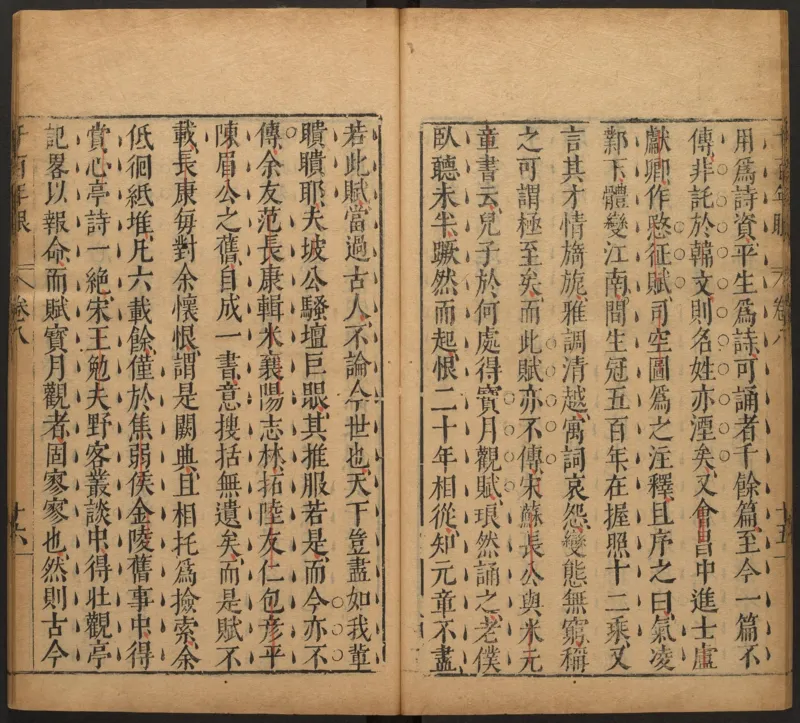 用爲詩資平生爲詩可誦者千餘篇至今一篇不
傳非託於韓文則名姓亦湮矣又會昌中進士盧
獻卿作愍征賦司空圖爲之注釋且序之曰氣凌
鄴下體變江南間生冠五百年在握照十二乘又
言其才情旖旎雅調清越寓詞哀怨變態無窮稱
之可謂極至矣而此賦亦不傳宋蘇長公與米元
章書云兒子於何處得寶月觀賦琅然誦之老僕
臥聽未半蹶然而起恨二十年相從知元章不盡
卷八
十五
若此賦當過古人不論今世也天下豈盡如我輩
聵聵耶夫坡公騷壇巨眼其推服若是而今亦不
傳余友范長康輯米襄陽志林拓陸友仁包彥平
陳眉公之舊自成一書意搜括無遺矣而是賦不
載長康每對余懷恨謂是闕典且相托爲撿索余
低徊紙堆凡六載餘僅於焦弱侯金陵舊事中得
賞心亭詩一絕宋王勉夫野客叢談中得壯觀亭
記畧以報命而賦寶月觀者固寥寥也然則古今
千百年眼
卷八
十六